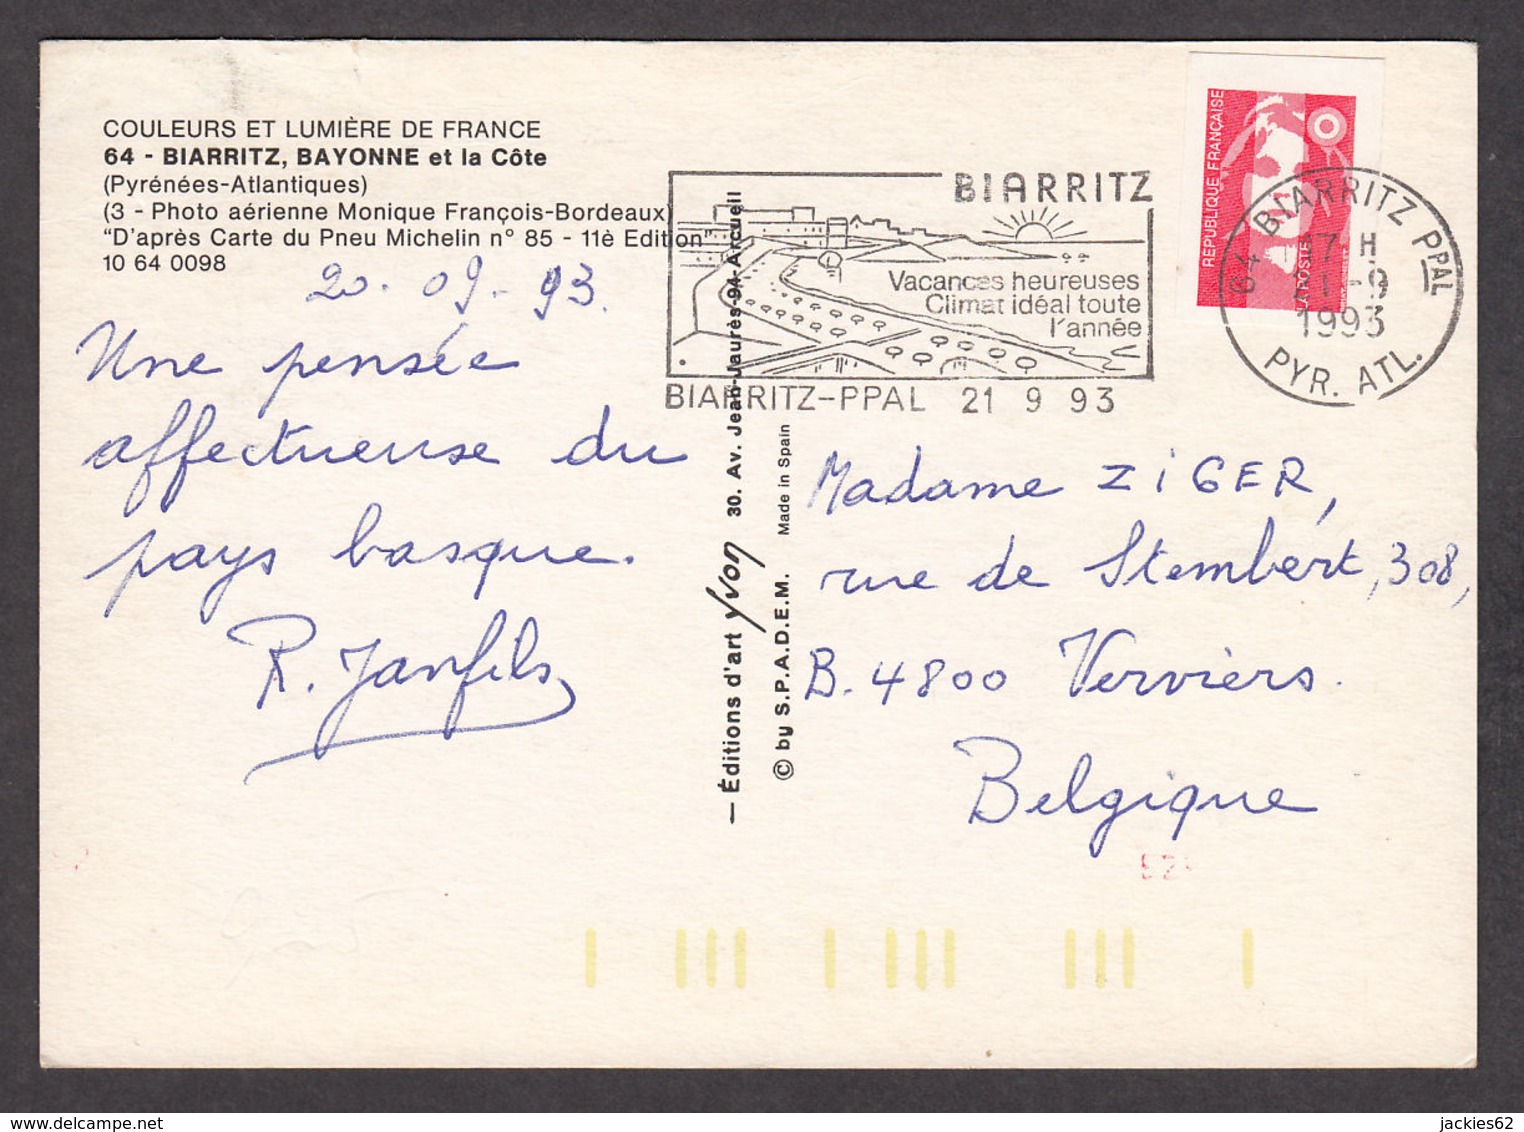 COULEURS ET LUMIÈRE DE FRANCE
64 - BIARRITZ, BAYONNE et la Côte
(Pyrénées-Atlantiques)
(3 - Photo aérienne Monique François-Bordeaux)
"D'après Carte du Pneu Michelin n° 85 - 11è Edition"
10 64 0098
20.09-93.
Une pensée
affectueuse du
pays basque.
R. Janfils
— Éditions d'art Yvon 30. Av. Jean-Jaurès-94-Arcueil
© by S.P.A.D.E.M. Made in Spain
BIARRITZ
Vacances heureuses
Climat idéal toute
l'année
BIARRITZ-PPAL 21 9 93
RÉPUBLIQUE FRANÇAISE
LA POSTE
64 BIARRITZ PPAL
17 H
21-9
1993
PYR. ATL.
Madame ZIGER,
rue de Stembert, 308,
B. 4800 Verviers.
Belgique
jackies62